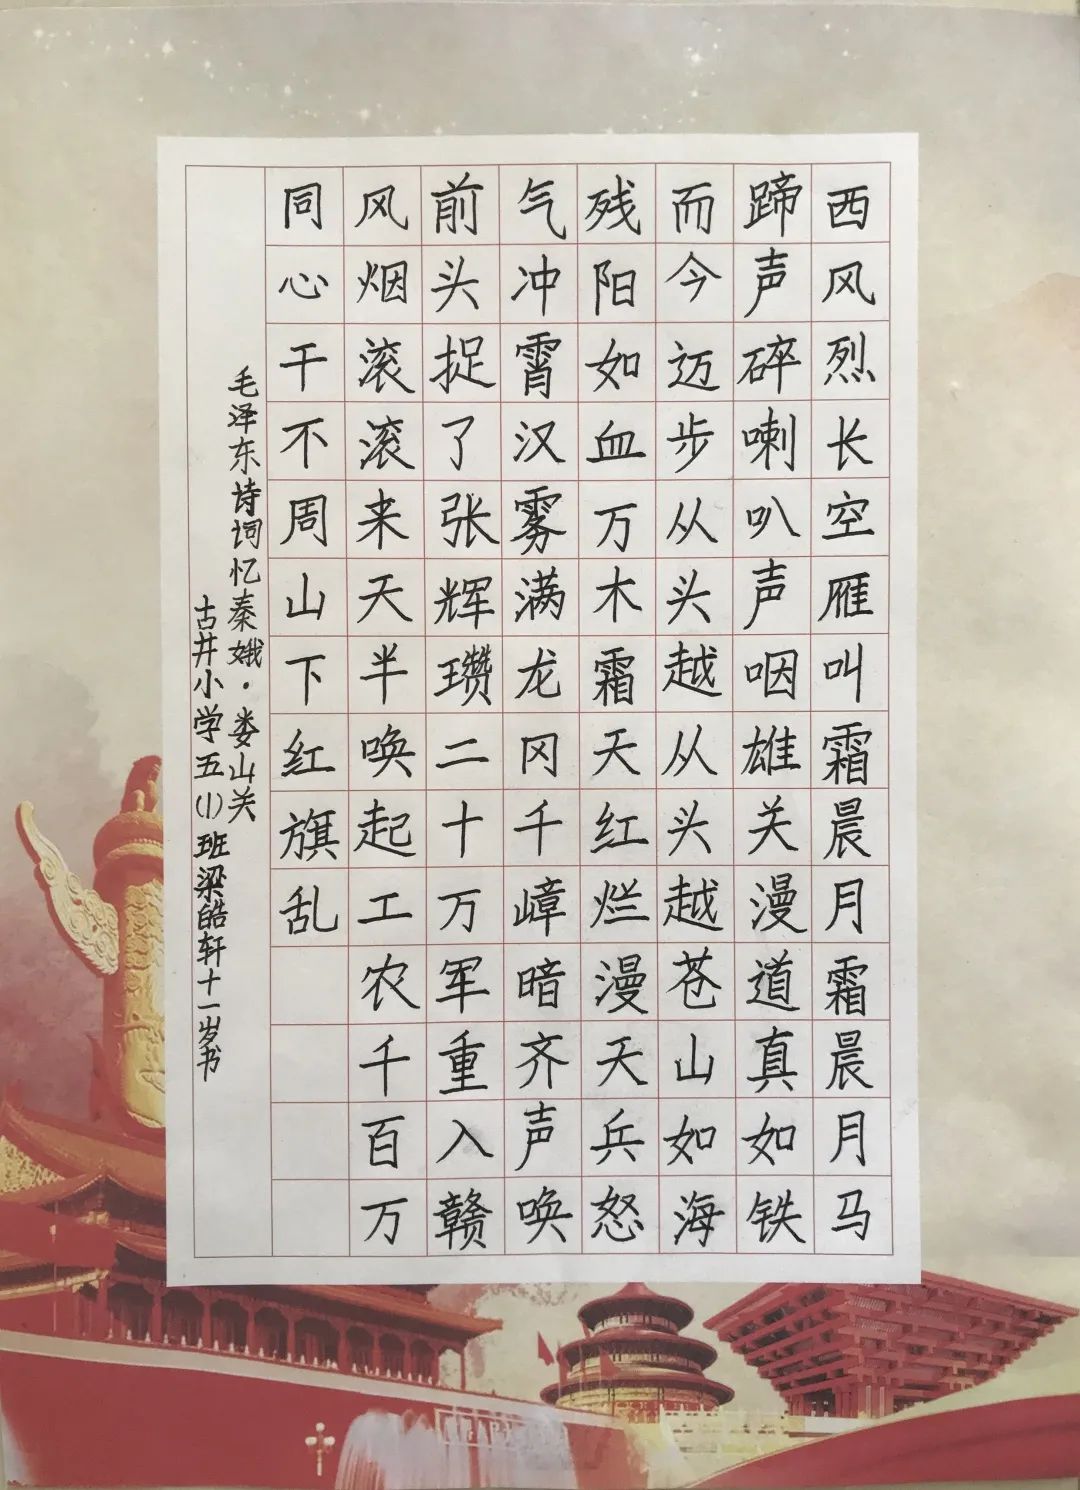 西风烈长空雁叫霜晨月霜晨月马
蹄声碎喇叭声咽雄关漫道真如铁
而今迈步从头越从头越苍山如海
残阳如血万木霜天红烂漫天兵怒
气冲霄汉雾满龙冈千嶂暗齐声唤
前头捉了张辉瓒二十万军重入赣
风烟滚滚来天半唤起工农千百万
同心干不周山下红旗乱
毛泽东诗词忆秦娥·娄山关
古井小学五(1)班梁皓轩十一岁书